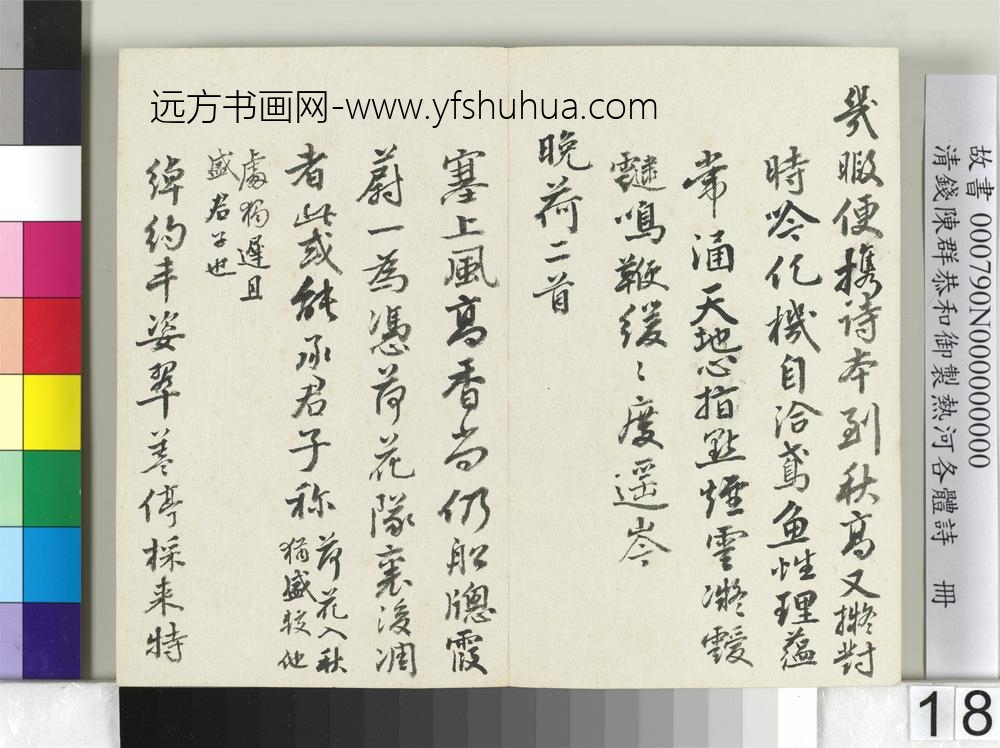 远方书画网-www.yfshuhua.com
幾暇便携诗本到秋高又擬對
時吟化機自洽鳶魚性理蘊
常涵天地心指點煙雲凝靉
靆鳴鞭緩〻度遥岑
晚荷二首
塞上風高香尚仍船牕霞
蔚一為憑荷花隊裏後凋
者此或能承君子称
荷花入秋
猶盛較他
處獨遲且
盛君子也
綽約丰姿翠蓋停採来特
故書 000790N000000000
清錢陳群恭和御製熱河各體詩 冊
18